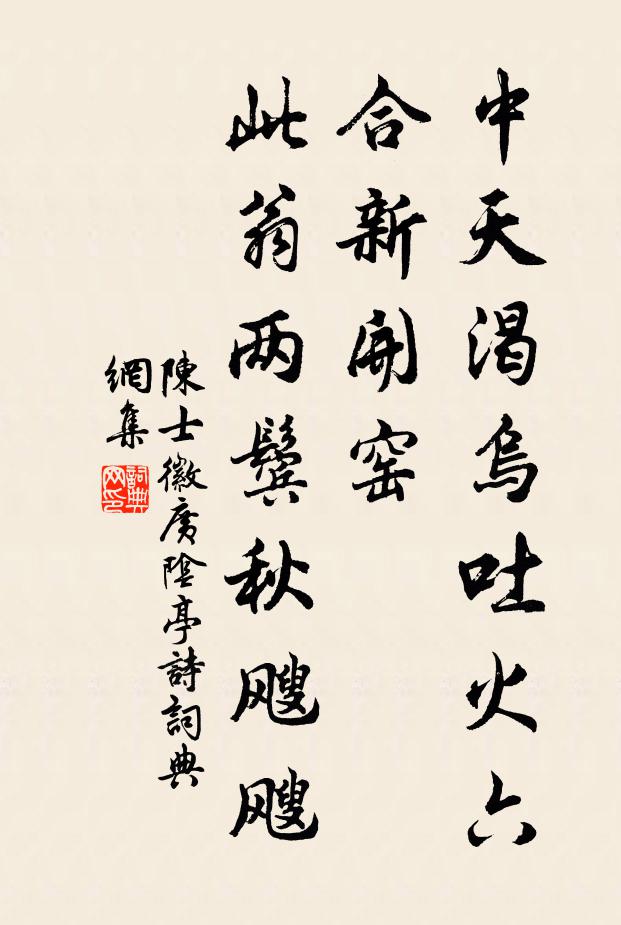 中天渴烏吐火六
合新開窑
此翁两鬓秋飕飕
陳士徽廣陰亭詩詞典
網集
詞典
网印